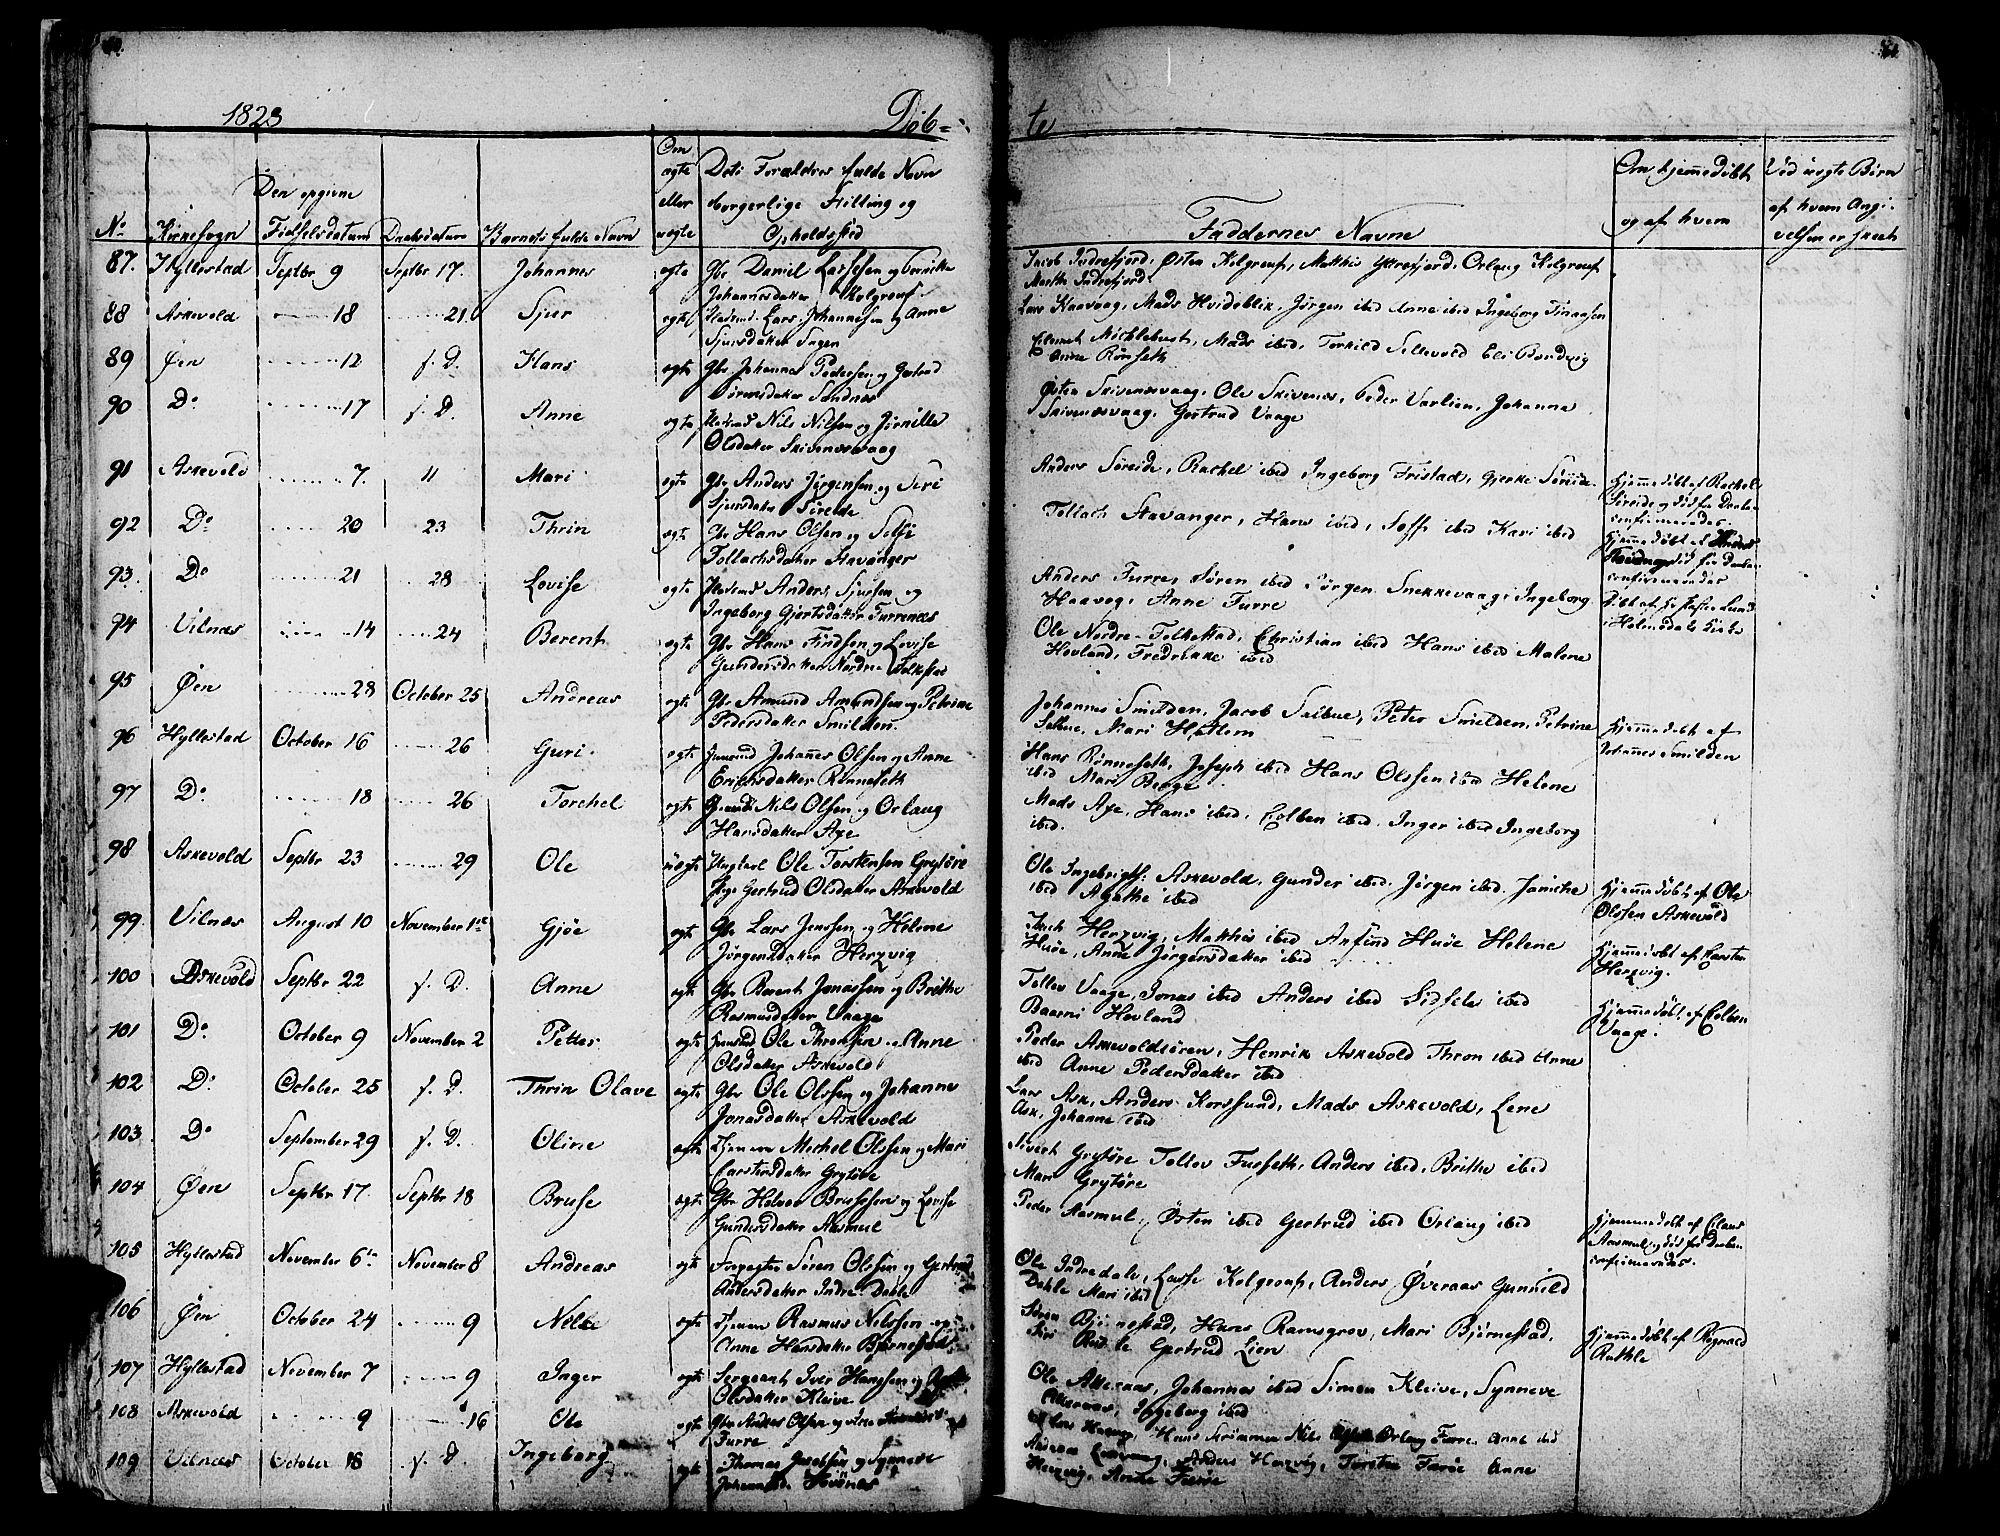 1823 Døb=
te
Den opgivne
No Kirkesogn Fødselsdatum Daabsdatum Barnets fulde Navn
Om ægte eller uægte
Dets Forældres fulde Navn
borgerlige Stilling og
Opholdsted
Faddernes Navne
Om hjemmedøbt
og af hvem
Ved uægte Børn
af hvem Angi-
velsen er skeet
87. Hyllestad Septbr 9 Septbr 17. Johannes ægte Gbr Daniel Lassesen og
Johannesdatter Kolgrouf
Jacob Indrefjord, Østen Kolgrouf, Matthis Yttrefjord, Orlaug Kolgrouf
Martha Indrefjord
88 Askevold 18 21 Sjur ægte Lars Johannesen og Anne
Sjursdatter
Lars Kaavaag, Mads Hvideblik, Jørgen ibid Anne ibid Ingeborg
89 Øen 12 f. D. Hans ægte Gbr Johannes Pedersen og
Sandnes
Micklebust, Mads ibid, Torkild Sellevold Eli
Anne Rønseth
90 Do 17 f. D. Anne ægte Nils Nilsen og Jørnille
Olsdatter Skivenesvaag
Østen Skivenesvaag, Ole Skivenes, Peder Varlien, Johanna
Skivenesvaag, Gertrud Vaage
91 Askevold 7. 11 Mari ægte Gbr Anders Jørgensen og Siri
Sjursdatter Søreide
Anders Søreide, Rachel ibid Ingeborg Fristad, Gjerke Søreide.
Hjemmedøbt af Rachel
Søreide og død før Daaben
confirmeredes.
92 Do 20 23 Thrin ægte Gbr Hans Olsen og
Tollachsdatter Stavanger
Tollach Stavanger, Hans ibid, ibid Kari ibid
Hjemmedøbt af
død før Daaben
confirmeredes
93. Do 21 28 Lovise ægte Anders Sjursen og
Ingeborg Gjertsdatter Furrenæs
Anders Furre, Søren ibid Jørgen Snekkevaag, Ingeborg
Haavog, Anne Furre
Døbt af
i Holmedals Kirke
94 Vilnæs 14 24 Berent ægte Gbr Hans Findsen og Lovise
Gundersdatter Nordre Folkestad
Ole Nordre-Folkestad, Christian ibid Hans ibid Malene
Hovland, Fredrikke ibid
95 Øen 28 October 25 Andreas ægte Gbr Amund Amundsen og Petrine
Pedersdatter Smilden.
Johannes Smilden, Jacob Salbue, Peter Smilden, Petrine
Salbue, Mari Hattem
Hjemmedøbt af
Johannes Smilden
96 Hyllestad October 16 26 Guri. ægte Johannes Olsen og Anne
Erichsdatter Rønneseth
Hans Rønneseth, Joseph ibid Hans Olssen ibid Helene
ibid Mari Berge
97 Do 18 26 Torchel ægte Nils Olsen og Orlaug
Hansdatter Axe
Mads Axe, Hans ibid, Colben ibid. Inger ibid Ingeborg
ibid.
98 Askevold Septbr 23 29 Ole uægte Ungkarl Ole Torstensen Grytøre
Pige Gertrud Olsdatter Askevold
Ole Ingebrigts: Askevold, Gunder ibid. Jørgen ibid. Janicke
ibid Agathe ibid
Hjemmedøbt af Ole
Olssen Askevold
99. Vilnæs August 10 November 1ste Gjøe ægte Gbr Lars Jenssen og Helene
Jørgensdatter Herzvig
Herzvig, Matthis ibid Anfind Huøe Helene
Huøe, Anne Jørgensdatter ibid
Hjemmedøbt af Karsten
Herzvig.
100 Askevold Septbr 22 f. D. Anne ægte Gbr Berent Jonassen og Brithe
Rasmusdatter Vaage
Tollev Vaage, Jonas ibid Anders ibid Sidsele ibid
Baarni Hovland
Hjemmedøbt af Colben
Vaage.
101 Do October 9 November 2 Petter ægte Ole Thronsen og Anne
Olsdatter Askevold
Peder Askevoldsøren, Henrik Askevold Thron ibid Anne
ibid Anne Pedersdatter ibid
102 Do October 25 f. D. Thrin Olave ægte Gbr Ole Olssen og Johanne
Jonasdatter Askevold
Lars Ask, Anders Korssund, Mads Askevold, Lene
Ask, Johanne ibid
103 Do September 29 f. D. Oline ægte Michel Olssen og Mari
Carstensdatter Grytøre
Sivert Grytøre Tollev Fusseth, Anders ibid, Brithe ibid
Mari Grytøre
104 Øen Septbr 17. Septbr 18 Bruse ægte Gbr Helver Brusesen og Lovise
Gundersdatter Aasmul
Peder Aasmul, Østen ibid Gertrud ibid Orlaug ibid
Hjemmedøbt af Claus
Aasmul og død før Daaben
confirmeredes.
105 Hyllestad November 6te November 8 Andreas ægte Søren Olssen og Gertrud
Andersdatter Indre Dahle
Ole Indredale, Lasse Kolgrouf, Anders Øveraas Gunnild
Dahle Mari ibid
106 Øen October 24 9 Nille ægte Rasmus Nilssen og
Anne Hansdatter Bjørnestad
Søren Bjørnestad, Hans Ramsgrov, Mari Bjørnestad,
Gertrud Lien
Hjemmedøbt af Rognald
107 Hyllestad November 7 9 Inger ægte Sergeant Iver Hanssen og
Olsdatter Kleive
Ole Akeraas, Johannes ibid Simon Kleive, Synneve
Akeraas, Ingeborg ibid
108 Askevold 9 16 Ole ægte Gbr Anders Olsen og
Furre
Hans Nils Orlaug Furre Anne ibid
109 Vilnæs October 18 f. D. Ingeborg ægte Thomas Jacobsen og Synneve
Anders Herzvig, Anne
Herzvig,